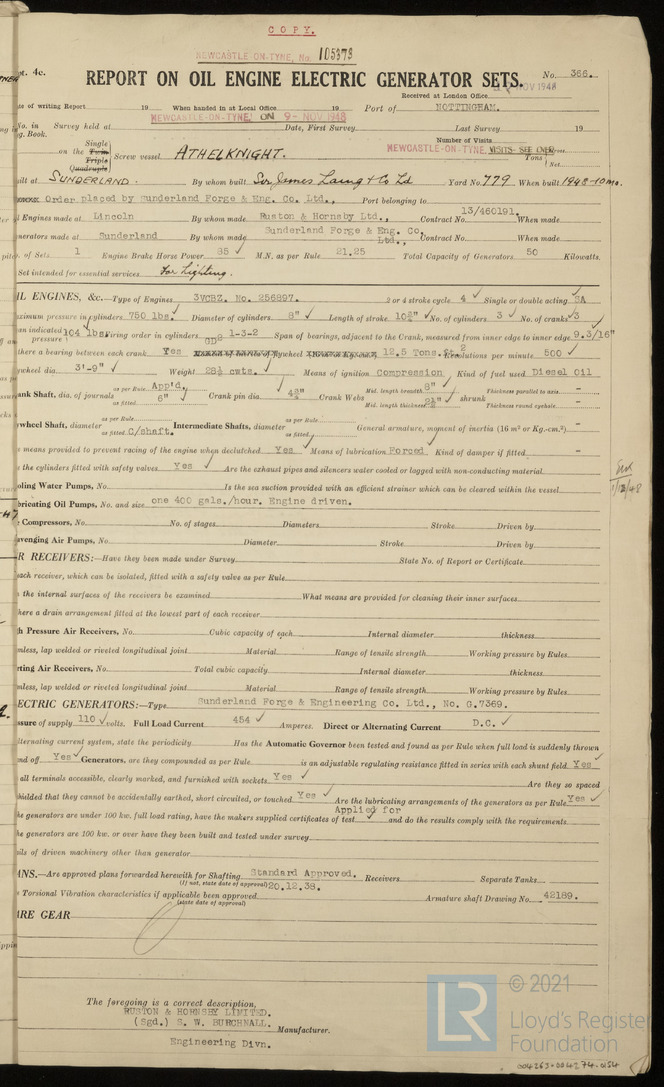 COPY.
NEWCASTLE-ON-TYNE, No. 105373
pt. 4c.
REPORT ON OIL ENGINE ELECTRIC GENERATOR SETS. No. 366.
Received at London Office NOV 1948
ate of writing Report 19 When handed in at Local Office 19 Port of NOTTINGHAM.
NEWCASTLE-ON-TYNE, ON 9- NOV 1948
No. in Survey held at Date, First Survey Last Survey 19
g. Book.
Number of Visits
NEWCASTLE-ON-TYNE, VISITS- SEE OVER
Single
on the Twin Screw vessel ATHELKNIGHT.
Triple
Quadruple
Tons Net
uilt at SUNDERLAND. By whom built Sir James Laing & Co Ld Yard No. 779 When built 1948-10mo.
Order placed by Sunderland Forge & Eng. Co. Ltd., Port belonging to
Engines made at Lincoln By whom made Ruston & Hornsby Ltd., Contract No. 13/460191. When made
nerators made at Sunderland By whom made Sunderland Forge & Eng. Co. Ltd., Contract No. When made
of Sets 1 Engine Brake Horse Power 85 M.N. as per Rule 21.25 Total Capacity of Generators 50 Kilowatts.
Set intended for essential services For Lighting.
IL ENGINES, &c.—Type of Engines 3VCBZ. No. 256897. 2 or 4 stroke cycle 4 Single or double acting SA
aximum pressure in cylinders 750 lbs. Diameter of cylinders 8" Length of stroke 10¾" No. of cylinders 3 No. of cranks 3
an indicated pressure 104 lbs. Firing order in cylinders 1-3-2 Span of bearings, adjacent to the Crank, measured from inner edge to inner edge 9.3/16"
there a bearing between each crank Yes GD² flywheel 12.5 Tons.Ft.2 Revolutions per minute 500
wheel dia. 3'-9" Weight 28½ cwts. Means of ignition Compression Kind of fuel used Diesel Oil
ank Shaft, dia. of journals as per Rule App'd. as fitted 6" Crank pin dia. 4¾" Crank Webs Mid. length breadth 8" Mid. length thickness 2½" shrunk Thickness parallel to axis - Thickness round eyehole -
ywheel Shaft, diameter as per Rule as fitted C/shaft. Intermediate Shafts, diameter as per Rule as fitted General armature, moment of inertia (16 m² or Kg.-cm.²) -
means provided to prevent racing of the engine when declutched Yes Means of lubrication Forced Kind of damper if fitted -
the cylinders fitted with safety valves Yes Are the exhaust pipes and silencers water cooled or lagged with non-conducting material
oling Water Pumps, No. Is the sea suction provided with an efficient strainer which can be cleared within the vessel
bricating Oil Pumps, No. and size one 400 gals./hour. Engine driven.
Compressors, No. No. of stages Diameters Stroke Driven by
avenging Air Pumps, No. Diameter Stroke Driven by
R RECEIVERS:—Have they been made under Survey State No. of Report or Certificate
each receiver, which can be isolated, fitted with a safety valve as per Rule
the internal surfaces of the receivers be examined What means are provided for cleaning their inner surfaces
here a drain arrangement fitted at the lowest part of each receiver
h Pressure Air Receivers, No. Cubic capacity of each Internal diameter thickness
mless, lap welded or riveted longitudinal joint Material Range of tensile strength Working pressure by Rules
rting Air Receivers, No. Total cubic capacity Internal diameter thickness
mless, lap welded or riveted longitudinal joint Material Range of tensile strength Working pressure by Rules
ECTRIC GENERATORS:—Type Sunderland Forge & Engineering Co. Ltd., No. G.7369.
ssure of supply 110 volts. Full Load Current 454 Amperes. Direct or Alternating Current D.C.
alternating current system, state the periodicity Has the Automatic Governor been tested and found as per Rule when full load is suddenly thrown
nd off Yes Generators, are they compounded as per Rule is an adjustable regulating resistance fitted in series with each shunt field Yes
all terminals accessible, clearly marked, and furnished with sockets Yes Are they so spaced
shielded that they cannot be accidentally earthed, short circuited, or touched Yes Are the lubricating arrangements of the generators as per Rule Yes
he generators are under 100 kw. full load rating, have the makers supplied certificates of test Applied for and do the results comply with the requirements
he generators are 100 kw. or over have they been built and tested under survey
ils of driven machinery other than generator
ANS.—Are approved plans forwarded herewith for Shafting Standard Approved. Receivers Separate Tanks
(If not, state date of approval) 20.12.38.
Torsional Vibration characteristics if applicable been approved Armature shaft Drawing No. 42189.
(state date of approval)
ARE GEAR
The foregoing is a correct description,
RUSTON & HORNSBY LIMITED.
(Sgd.) S. W. BURCHNALL. Manufacturer.
Engineering Divn.
LR © 2021
Lloyd's Register
Foundation
004263-004274-0154